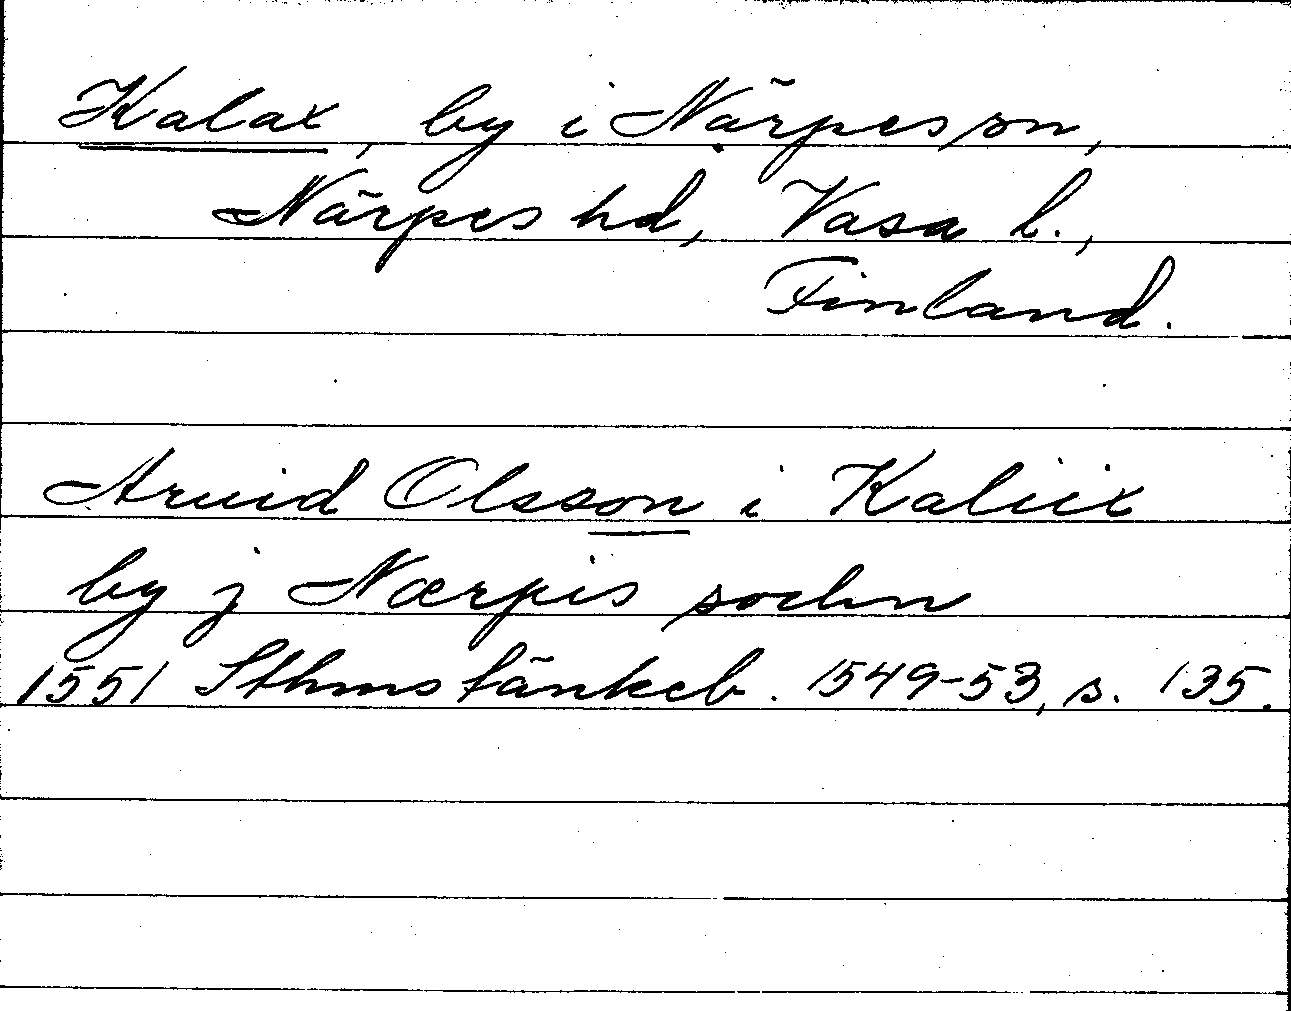 Kalax, by i Närpes sn,
Närpes hd, Vasa l.,
Finland.
Aruid Olsson i Kaliix
by j Nærpis sochn
1551 Sthms tänkeb. 1549-53, s. 135.